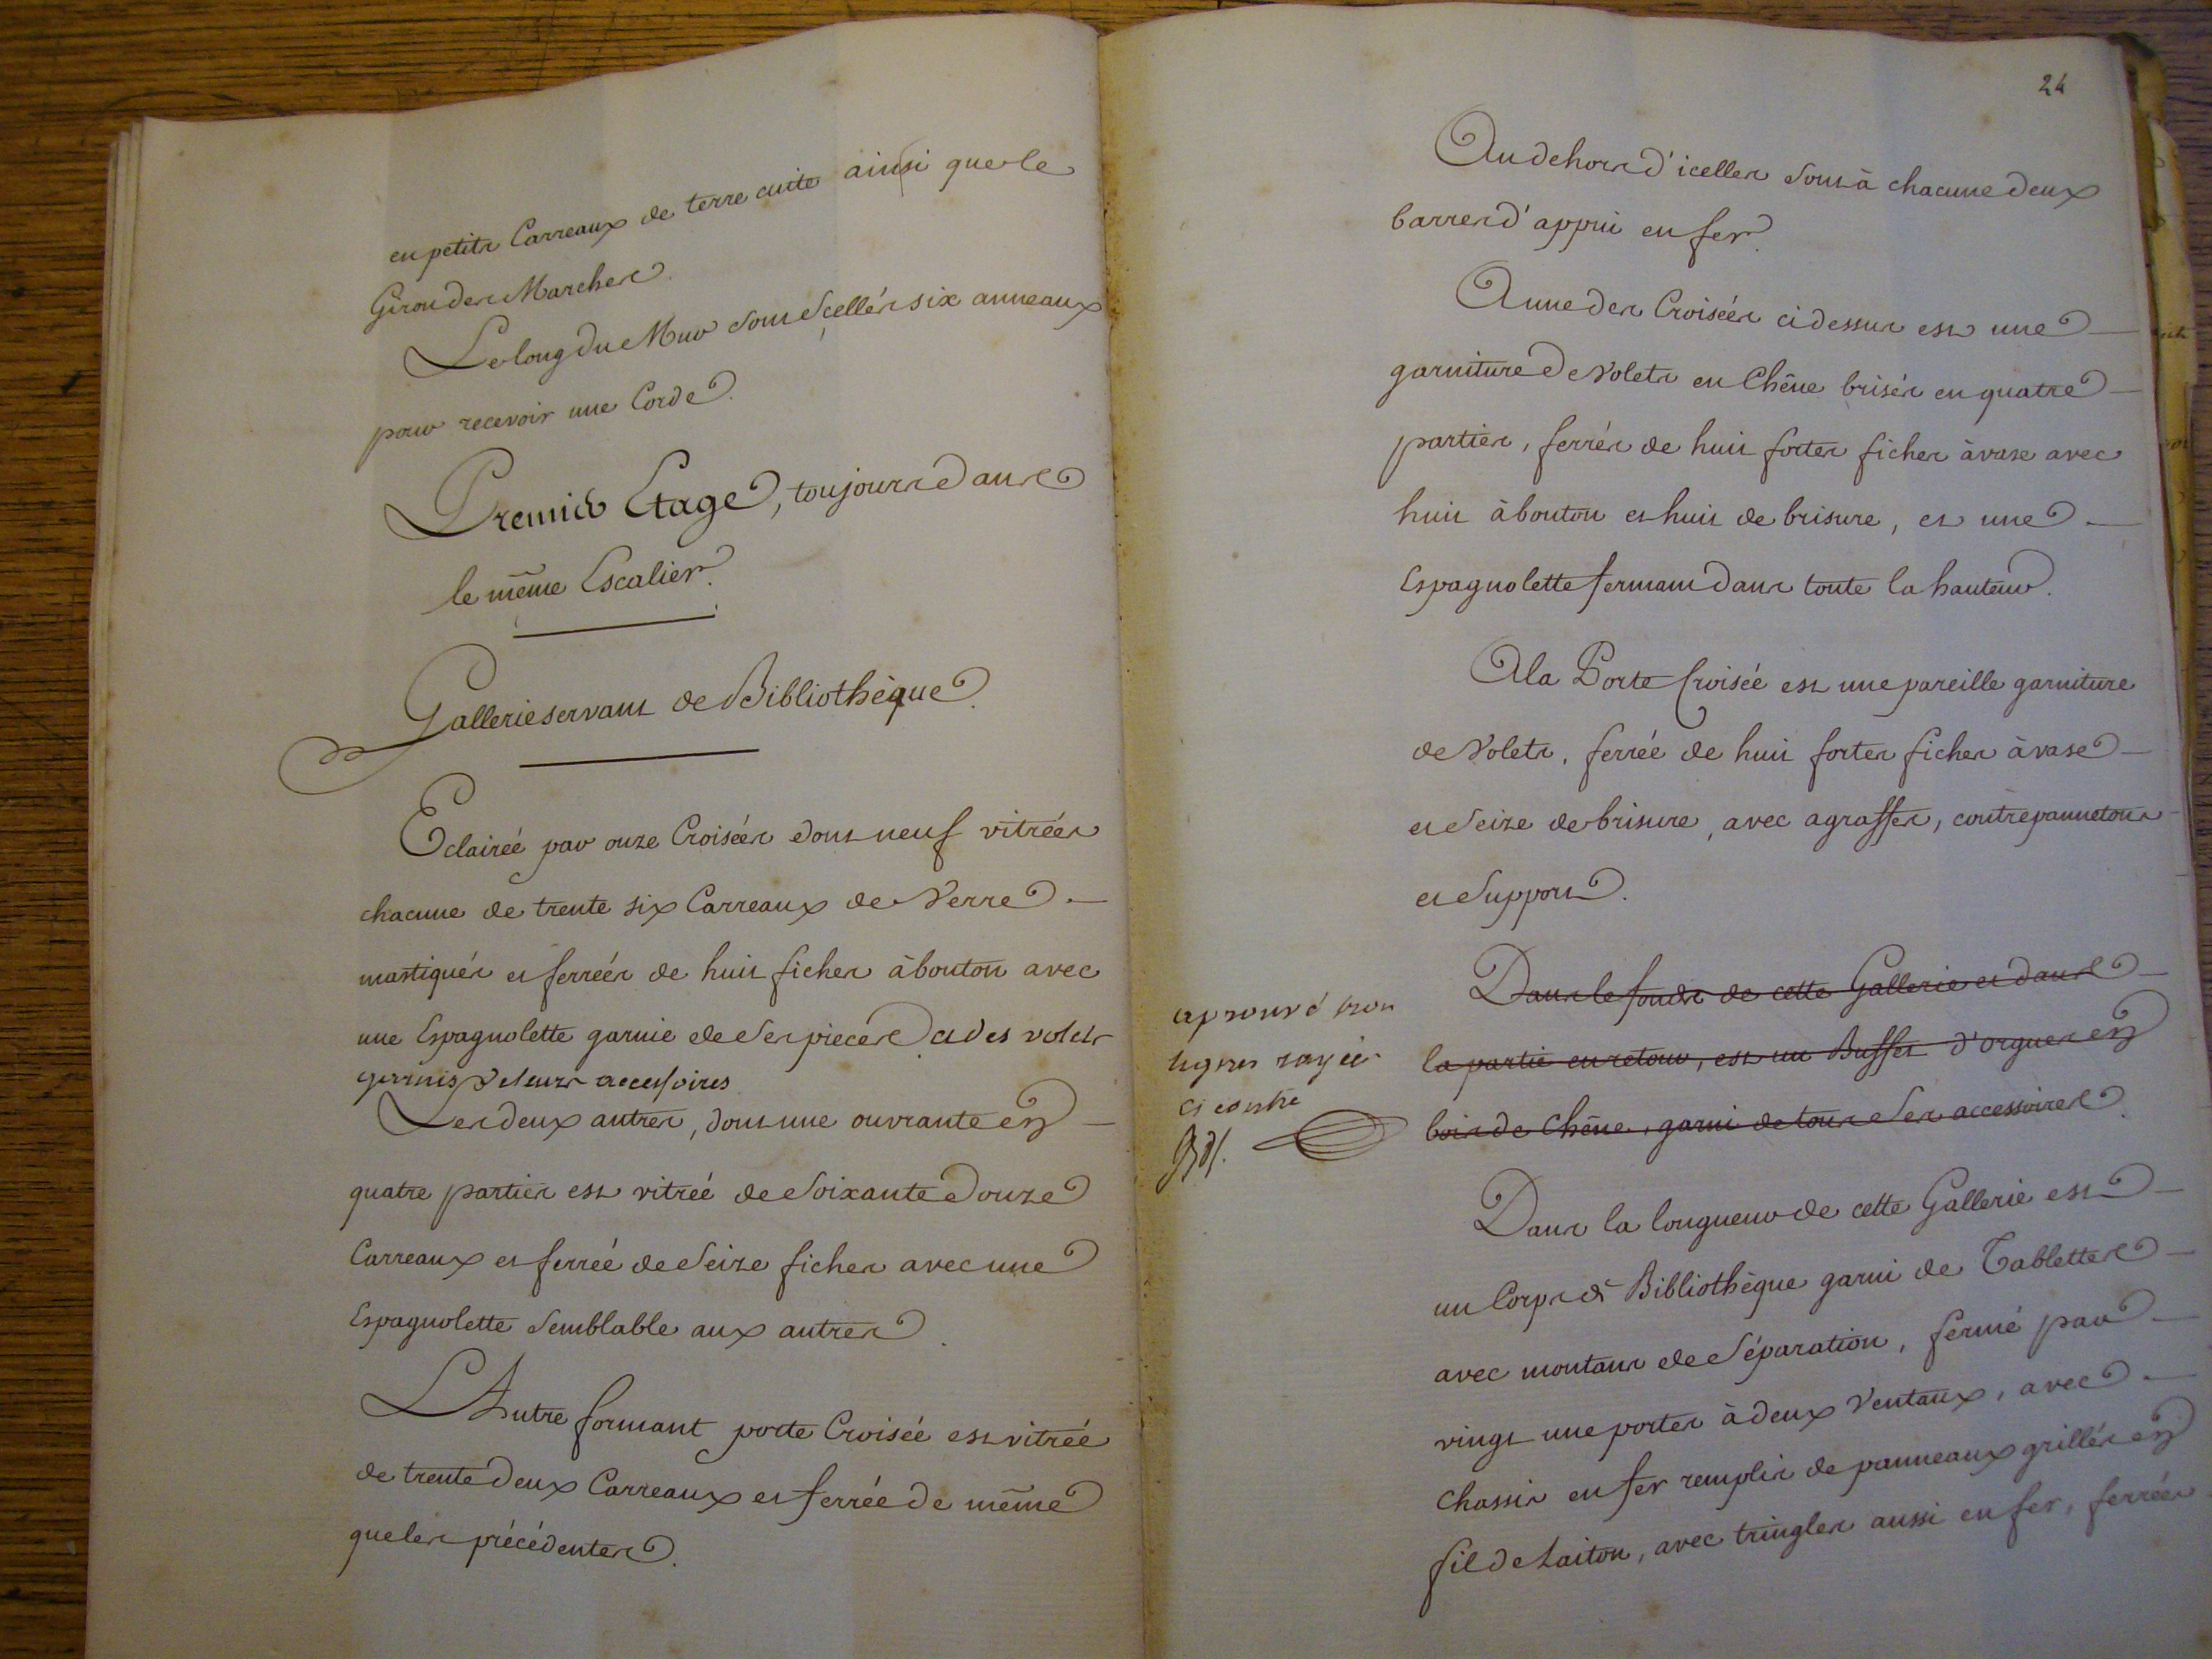 en petits Carreaux de terre cuite ainsi que le
Giron des Marches.
Le long du Mur sont scellés six anneaux
pour recevoir une Corde.
Premier Etage, toujours dans
le même Escalier.
Gallerie servant de Bibliothèque.
Eclairée par onze Croisées dont neuf vitrées
chacune de trente six Carreaux de Verre
mastiqués et ferrées de huit fiches à bouton avec
une Espagnolette garnie de ses pieces et des volets
garnis de leurs accessoires
Les deux autres, dont une ouvrante en
quatre parties est vitrée de soixante douze
Carreaux et ferrée de seize fiches avec une
Espagnolette semblable aux autres.
L'Autre formant porte Croisée est vitrée
de trente deux Carreaux et ferrée de même
que les précédentes.
24
Au dehors d'icelles sont à chacune deux
barres d'appui en fer.
A une des Croisées ci dessus est une
garniture de Volets en Chêne brisés en quatre
parties, ferrés de huit fortes fiches à vase avec
huit à bouton et huit de brisure, et une
Espagnolette fermant dans toute la hauteur.
A la Porte Croisée est une pareille garniture
de Volets, ferrée de huit fortes fiches à vase
et seize de brisure, avec agraffes, contrepannetons
et support.
Dans le fonds de cette Gallerie et dans
la partie en retour, est un Buffet d'orgues en
bois de Chêne, garni de tous ses accessoires.
aprouvé trois
lignes rayées
ci contre
Dans la longueur de cette Gallerie est
un Corps de Bibliothèque garni de Tablettes
avec montans de séparation, fermé par
vingt une portes à deux Ventaux, avec
chassis en fer remplis de panneaux grillés en
fil de Laiton, avec tringles aussi en fer, ferrées